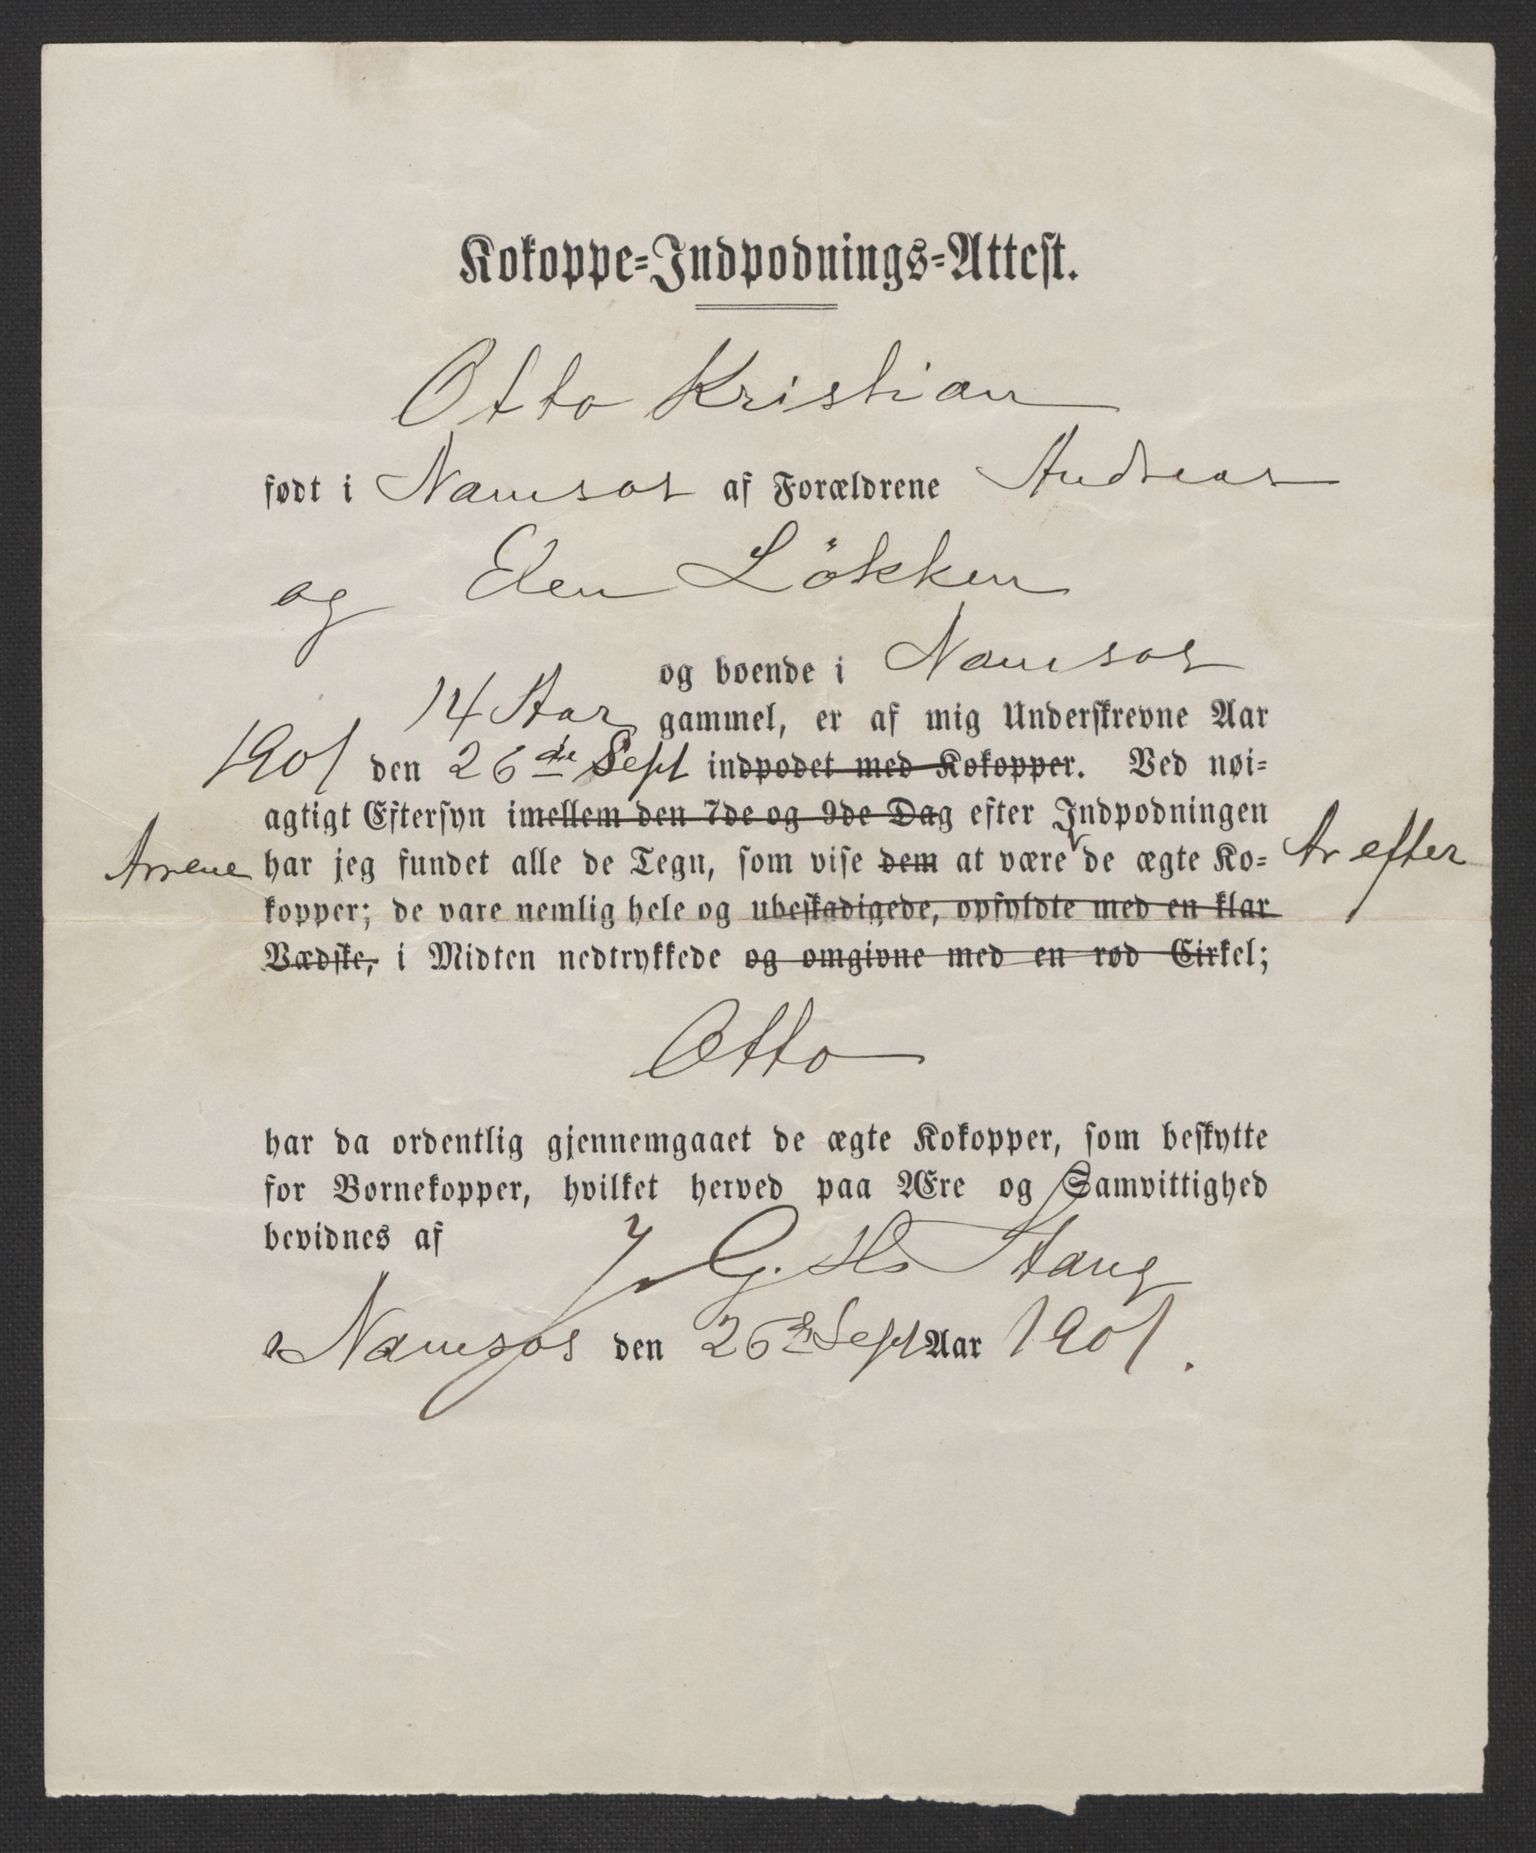 Kokoppe-Indpodnings-Attest.
Otto Kristian
født i Namsos af Forældrene Andreas
og Elen Lökken
og boende i Namsos
14 Aar gammel, er af mig Underskrevne Aar
1901 den 26de Sept indpodet med Kokopper. Ved nøi-
agtigt Eftersyn imellem den 7de og 9de Dag efter Indpodningen
Arrene har jeg fundet alle de Tegn, som vise dem at være de ægte Ko- Ar efter
kopper; de vare nemlig hele og ubeskadigede, opfyldte med en klar
Vædske, i Midten nedtrykkede og omgivne med en rød Cirkel;
Otto
har da ordentlig gjennemgaaet de ægte Kokopper, som beskytte
for Børnekopper, hvilket herved paa Ære og Samvittighed
bevidnes af J. G. H. Stang
Namsos den 26de Sept Aar 1901.